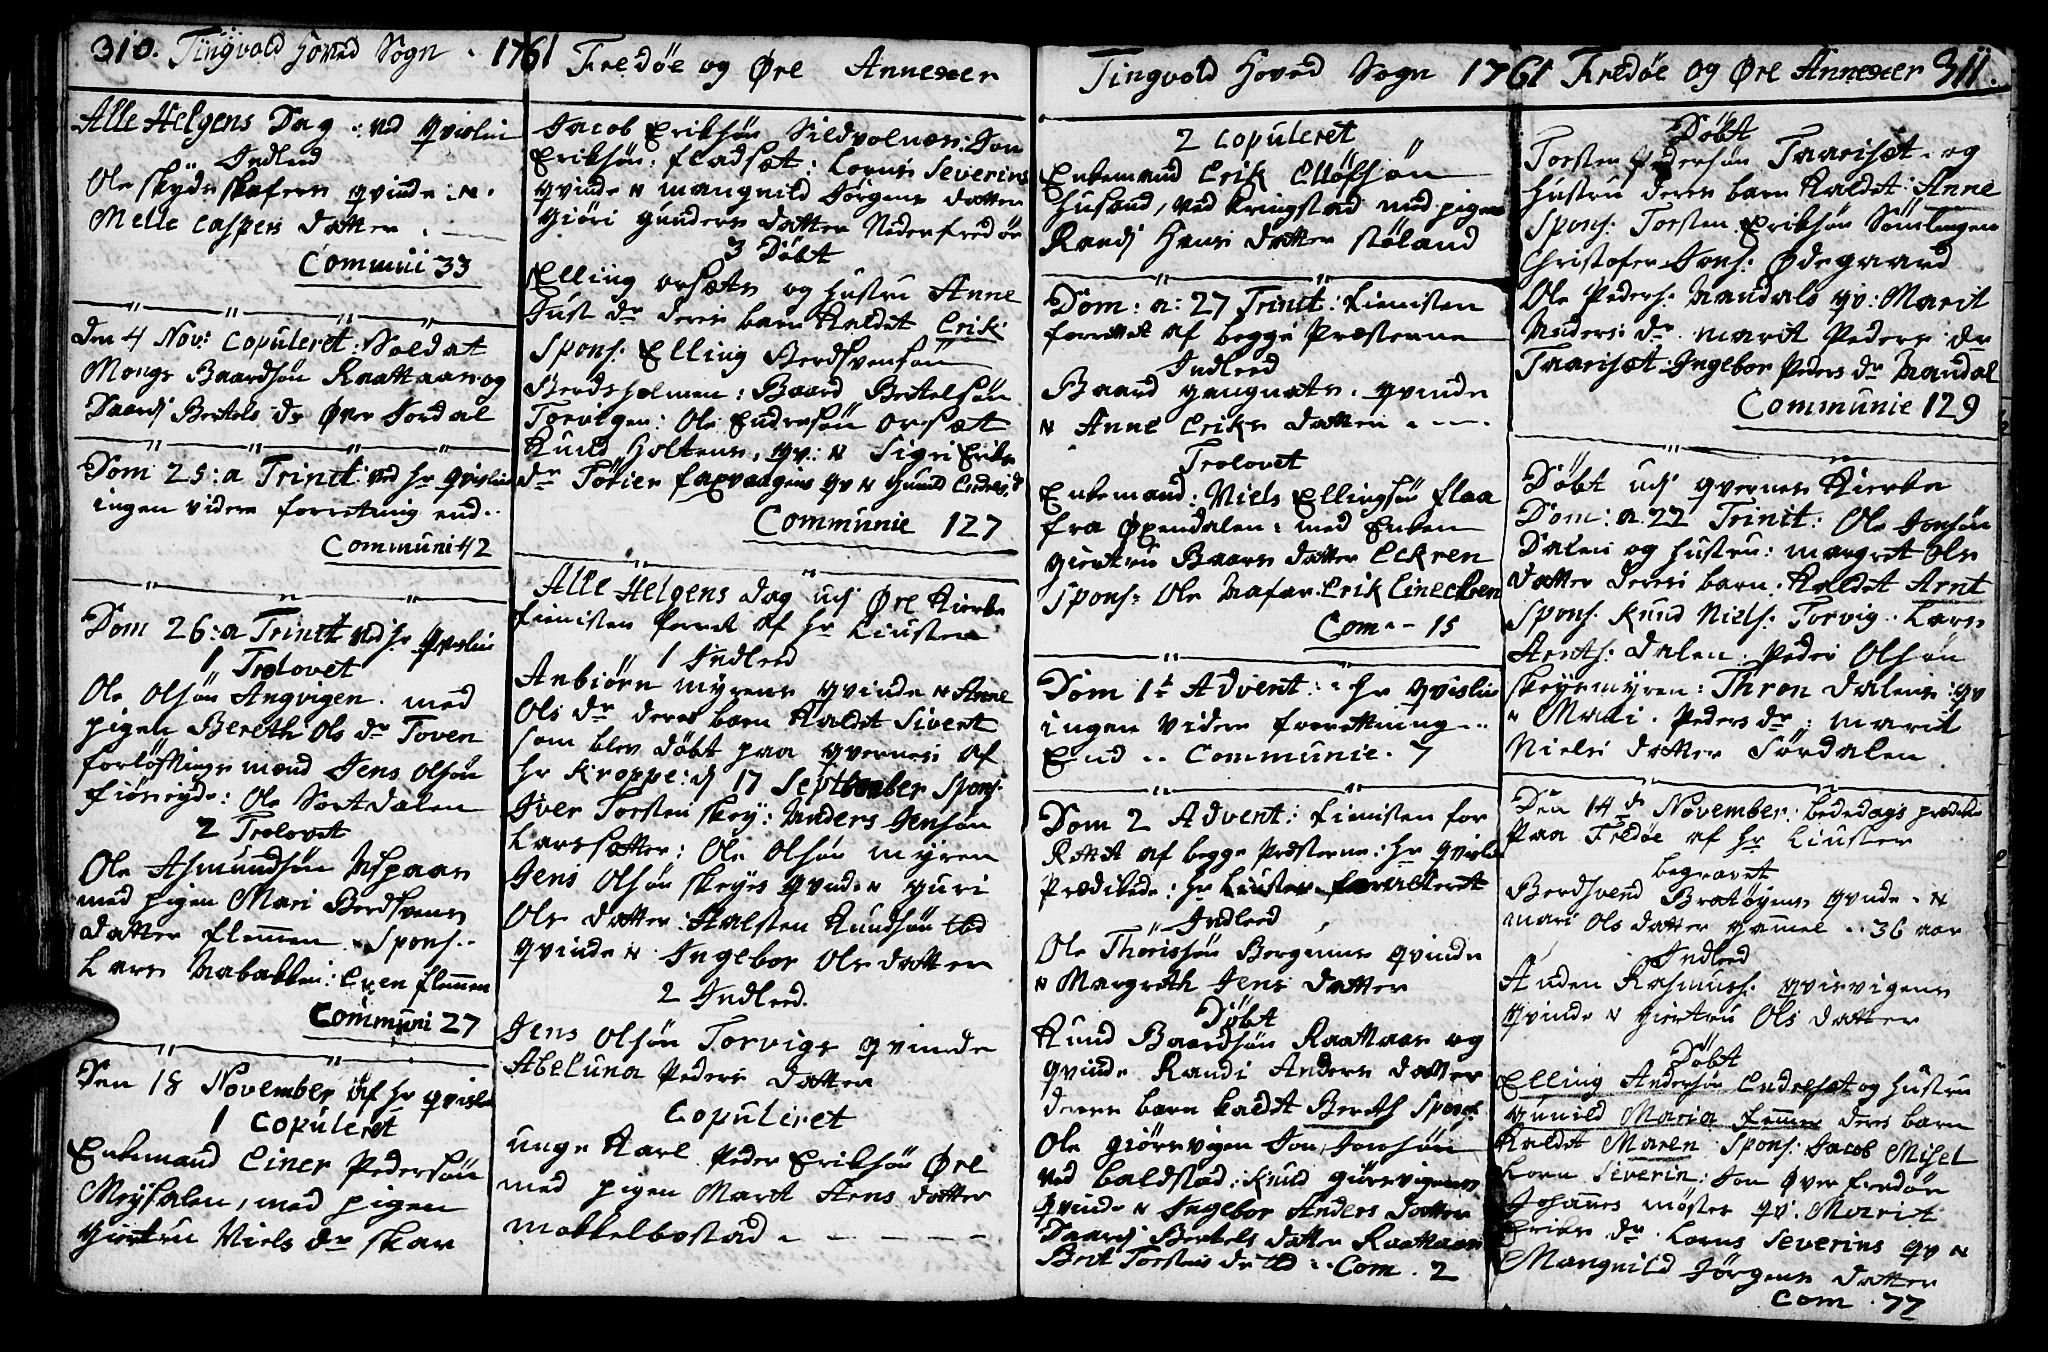 310. Tingvold Hoved Sogn. 1761
Alle Helgens Dag: ved Qvislin
Indleed
Ole skydsskafers qvinde: N.
Melle Caspers datter.
Communi 33
den 4 Nov: Copuleret: Soldat
Mongs Baardsøn Raattaas og
Baardj Bertels dr Øvre Sordal
Dom 25: a Trinit: ved Hr Qvislin
ingen videre forretning end..
Communi 42
Dom 26: a Trinit ved Hr Qvislin
1 Trolovet
Ole Olsøn Angvigen. med
pigen Bereth Ols dr Toven
forløftnings mænd Jens Olsøn
Ole Sortdalen
2 Trolovet
Ole Asmundsøn Aspaas
med pigen Mari Berdsvens
datter flemmen. Spons..
Lars Nabakken: Even flemmen
Communi 27
Den 18 November af Hr Qvislin
1 Copuleret
Enkemand Einer Pedersøn
Meysalen, med pigen
Giertru Niels dr skar
Fredøe og Øre Annexer
Jacob Eriksøn Sildvolnæs: Jon
Eriksøn: fladsæt: Lorns Severins
qvinde N Mangnild Jørgens datter
Giøri Gunders datter Nederfredøe
3 Døbt
Elling orsæter og Hustru Anne
Just dr deres barn kaldet Erik:
Spons: Elling Berdsvensøn
Berdsholmen: Baard Bertelsøn
Torvigen: Ole Endresøn orsæt
Knud Holtens, qv: N Sigri Eriks
dr Tørier faxvaagens qv N Gunild Endres d
Communie 127
Alle Helgens dag udj Øre Kierke
tienisten forret af Hr Liusten
1 Indleed
Anbiørn myrens qvinde N Anne
Ols dr deres barn kaldet Sivert
som blev døbt paa qvernes af
Hr Kroppe: d 17 September Spons:
Iver Torsten skey: Anders Jensøn
Larssætter: Ole Olsøn myren
Jens Olsøn skeyes qvinde N guri
Ols datter: Halsten Knudsøn ibd
qvinde N Ingebor Ols datter
2 Indleed.
Jens Olsøn Torvigs qvinde
Abeluna Peders datter
Copuleret
unge Karl Peder Eriksøn Øre
med pigen Marit Jens datter
mokkelbostad - - - - -
Tingvold Hoved Sogn 1761 Fredøe og Øre Annexer 311.
2 Copuleret
Enkemand Erik Elløfsøn
Husand, ved Kringstad med pigen
Randj Hans datter støland
Dom: a: 27 Trinit: tienisten
forrettet af begge Præsterne
Indleed
Baard gangnats. qvinde
N Anne Eriks datter - - -
Trolovet
Enkemand: Niels Ellingsøn flaa
fra Øxendalen: med Enken
Giertru Baars datter Eckren
Spons: Ole Nafar. Erik Lineckren
Com-- 15
Dom 1te Advent: Hr Qvislin
ingen videre forretning...
End .. Communie. 7
Dom 2 Advent: tienisten for
Rettet af begge Præsterne: Hr Qvislin
Prædikede: Hr Liusten forrettet
Indleed
Ole Thorissøn Bergums qvinde
N Margreth Jens datter
Døbt
Knud Baardsøn Raattaas og
qvinde Randi Anders datter
deres barn kaldet Bereth Spons:
Ole giørsvigen Jon Jonsøn
ved Baldstad: Knud giørsvigens
qvinde N Ingebor Anders datter
Baardj Bertels datter Raattaas
Brit Torstens dr ibd .. Com. 2
Døbt
Torsten Pedersøn Taarisæt. og
Hustru deres barn kaldet: Anne
Spons: Torsten Eriksøn Sømlungen
Christofer Jons: Ødegaard
Ole Peders: Nandals qv: Marit
Anders dr. marit Peders dr
Taarisæt. Ingebor Peders dr Nandal
Communie 129
Døbt udj qvernes Kierke
Dom: a. 22 Trinit: Ole Jonsøn
Dalen og Hustru: margret Ols
datter deres barn kaldet Arnt
Spons: Knud Niels: Torvig.. Lars
Arnts: dalen. Peder Olsøn
skeysmyren: Thron dalens: qv
N Mari. Peders dr: marit
Niels datter Sørdalen.
Den 14 de November: bededags prædiken
paa Fredøe af Hr Liusten
begravet
Berdsvend Bratøyens qvinde. N
mari Ols datter gammel .. 36 aar
Indleed
Auden Rasmus: qvisvigens
qvinde N Giertru Ols datter
Døbt
Elling Andersøn Endresæt og Hustru
gunild Maria deres barn
kaldet Maren Spons: Jacob Misel
Lorn Severin: Jon Øvre fredøe
Johannes møster qv. Marit
Eriks dr. Lorns Severins qv N
Mangnild Jørgens datter
Com. 77